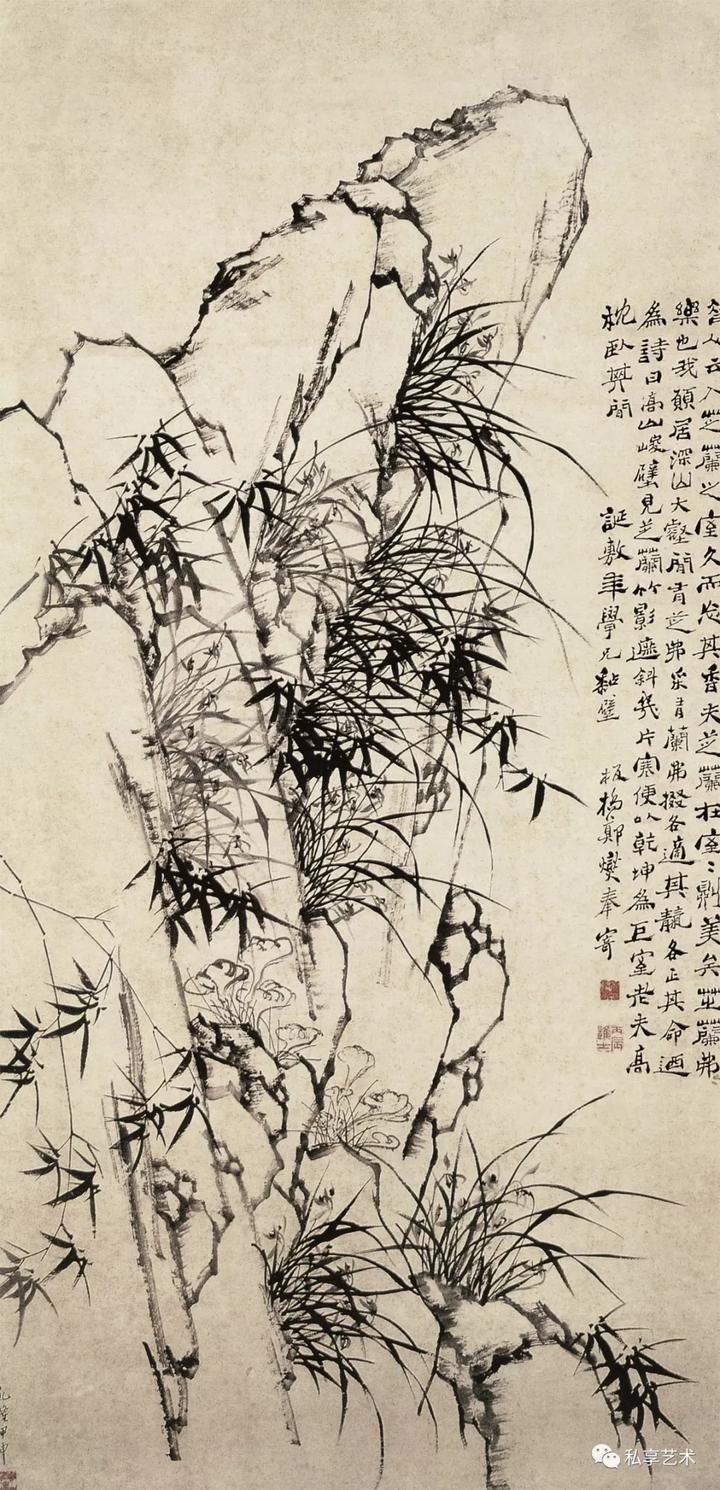 昔人云入芝蘭之室久而忘其香夫芝蘭在室〻則美矣芝蘭弗
樂也我願居深山大壑間有芝弗采有蘭弗掇各適其各正其命迺
為詩曰高山峻壁見芝蘭竹影遮斜幾片寒便以乾坤為巨室老夫高
枕臥其間 誕敷年學兄黏壁 板橋鄭燮奉寄
丙辰進士
乾隆甲申
私享艺术